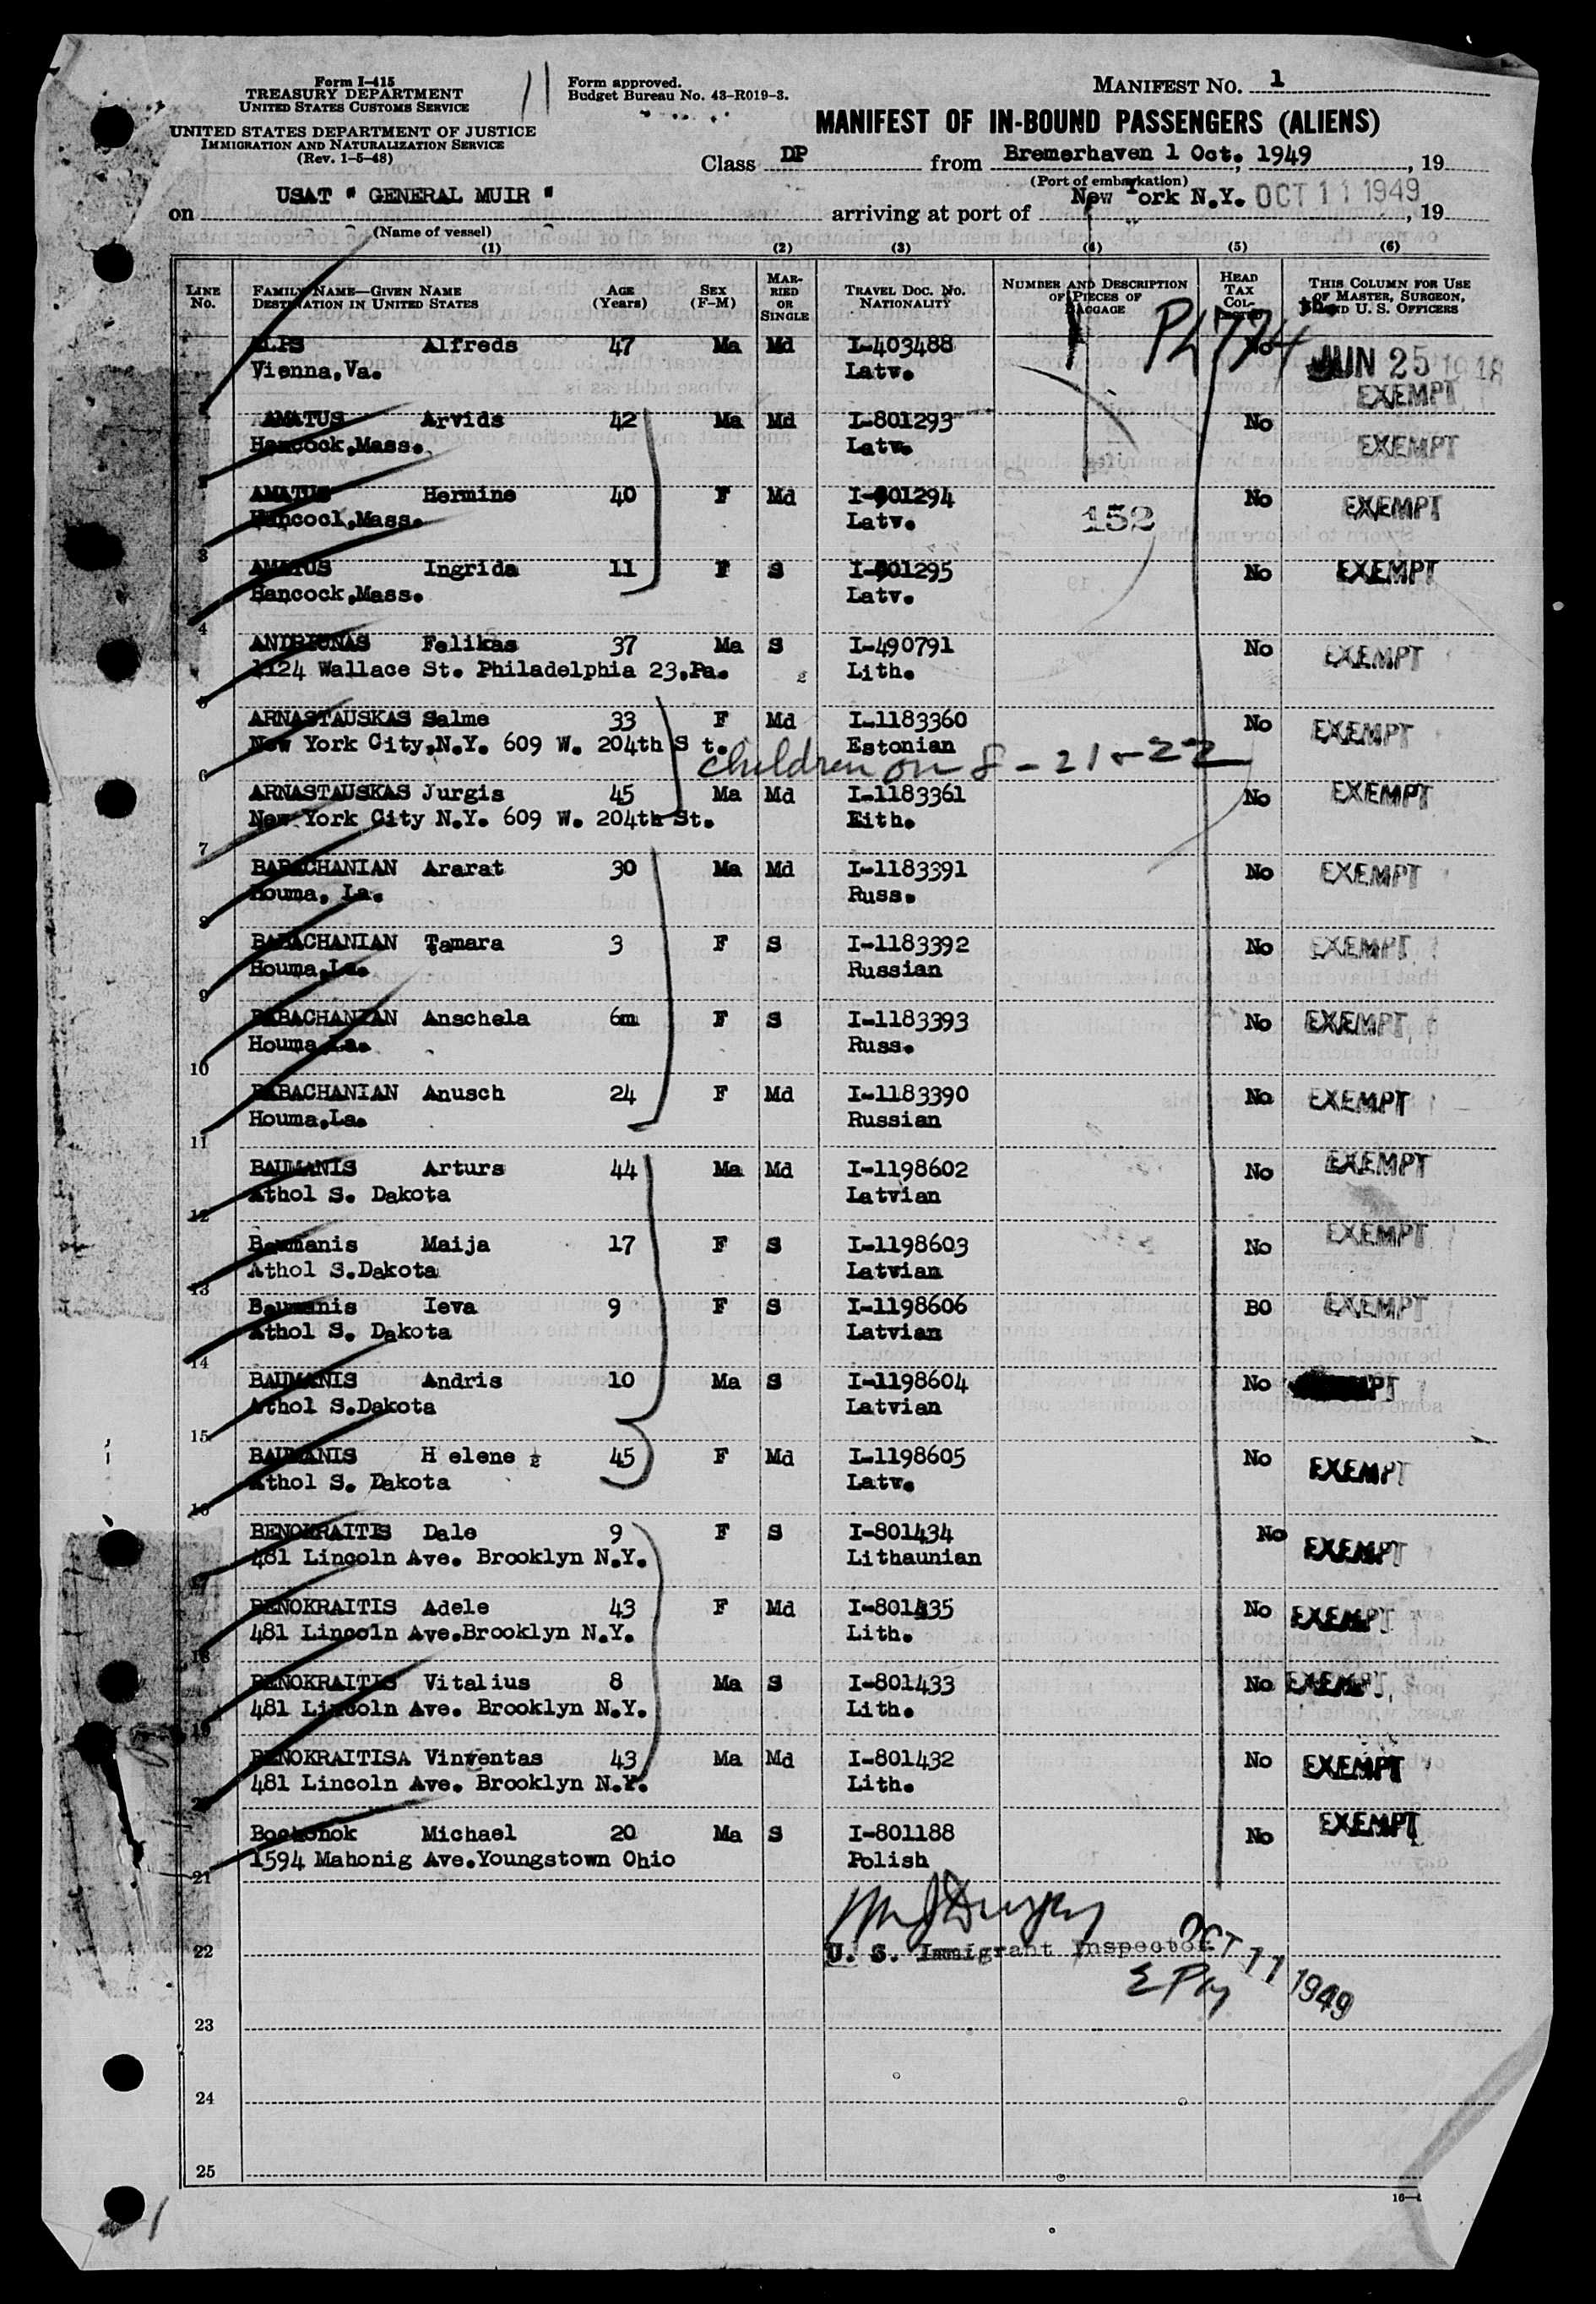 Form I-415
TREASURY DEPARTMENT
UNITED STATES CUSTOMS SERVICE
UNITED STATES DEPARTMENT OF JUSTICE
IMMIGRATION AND NATURALIZATION SERVICE
(Rev. 1-5-48)
11
Form approved.
Budget Bureau No. 43-R019-3.
MANIFEST NO. 1
MANIFEST OF IN-BOUND PASSENGERS (ALIENS)
Class DP from Bremerhaven 1 Oct. 1949, 19
(Port of embarkation)
on USAT " GENERAL MUIR " arriving at port of New York N.Y. OCT 11 1949, 19
(Name of vessel)
(1) (2) (3) (4) (5) (6)
LINE No. FAMILY NAME—GIVEN NAME DESTINATION IN UNITED STATES AGE (Years) SEX (F-M) MARRIED OR SINGLE TRAVEL DOC. NO. NATIONALITY NUMBER AND DESCRIPTION OF PIECES OF BAGGAGE HEAD TAX COLLECTED THIS COLUMN FOR USE OF MASTER, SURGEON, AND U. S. OFFICERS
PL 774
JUN 25 1948
ALPS Alfreds 47 Ma Md I-403488 No EXEMPT
Vienna,Va. Latv.
AMATUS Arvids 42 Ma Md I-801293 No EXEMPT
Hancock,Mass. Latv.
AMATUS Hermine 40 F Md I-801294 No EXEMPT
Hancocl,Mass. Latv. 152
3
AMATUS Ingrida 11 F S I-801295 No EXEMPT
Hancock,Mass. Latv.
4
ANDRIUNAS Felikas 37 Ma S I-490791 No EXEMPT
1124 Wallace St. Philadelphia 23.Pa. Lith.
5
ARNASTAUSKAS Salme 33 F Md I-1183360 No EXEMPT
New York City,N.Y. 609 W. 204th S t. Estonian
6 children on 8 - 21 - 22
ARNASTAUSKAS Jurgis 45 Ma Md I-1183361 No EXEMPT
New York City N.Y. 609 W. 204th St. Lith.
7
BABACHANIAN Ararat 30 Ma Md I-1183391 No EXEMPT
Houma, La. Russ.
8
BABACHANIAN Tamara 3 F S I-1183392 No EXEMPT
Houma,La. Russian
9
BABACHANIAN Anschela 6m F S I-1183393 No EXEMPT
Houma,La. Russ.
10
BABACHANIAN Anusch 24 F Md I-1183390 No EXEMPT
Houma,La. Russian
11
BAUMANIS Arturs 44 Ma Md I-1198602 No EXEMPT
Athol S. Dakota Latvian
12
Baumanis Maija 17 F S I-1198603 No EXEMPT
Athol S.Dakota Latvian
13
Baumanis Ieva 9 F S I-1198606 BO EXEMPT
Athol S. Dakota Latvian
14
BAUMANIS Andris 10 Ma S I-1198604 No EXEMPT
Athol S.Dakota Latvian
15
BAUMANIS H elene 45 F Md I-1198605 No EXEMPT
Athol S. Dakota Latv.
16
BENOKRAITIS Dale 9 F S I-801434 No EXEMPT
481 Lincoln Ave. Brooklyn N.Y. Lithaunian
17
BENOKRAITIS Adele 43 F Md I-801435 No EXEMPT
481 Lincoln Ave.Brooklyn N.Y. Lith.
18
BENOKRAITIS Vitalius 8 Ma S I-801433 No EXEMPT
481 Lincoln Ave. Brooklyn N.Y. Lith.
19
BENOKRAITISA Vincentas 43 Ma Md I-801432 No EXEMPT
481 Lincoln Ave. Brooklyn N.Y. Lith.
20
Bochonok Michael 20 Ma S I-801188 No EXEMPT
1594 Mahonig Ave.Youngstown Ohio Polish
21
22 U. S. Immigrant Inspector OCT 11 1949
23
24
25
16—1
1